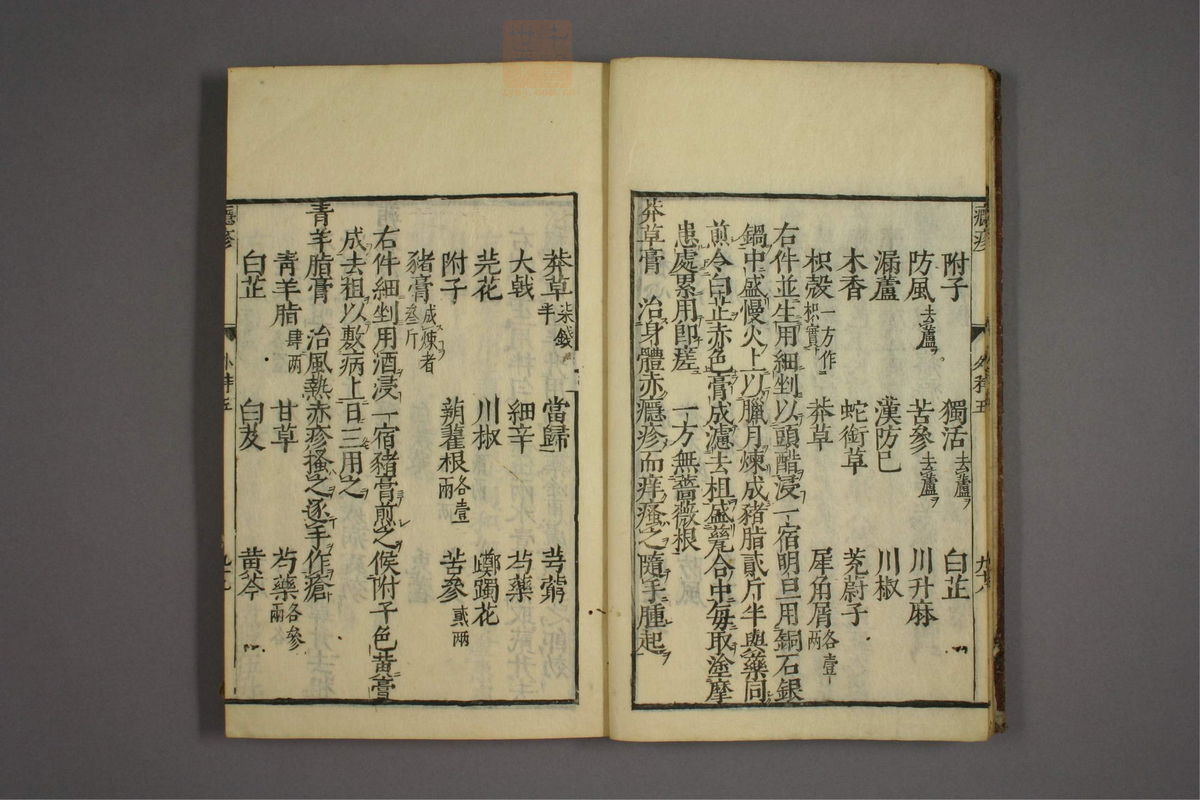 癮疹
附子 獨活去蘆 白芷
防風去蘆 苦參去蘆 川升麻
漏蘆 漢防已 川椒
木香 蛇銜草 茺蔚子
枳殼一方作枳實 莽草 犀角屑各壹兩
右件並生用細剉以頭醋浸一宿明旦用銅石銀
鍋中盛慢火上以臘月煉成豬脂貳斤半與藥同
煎令白芷赤色膏成濾去柤盛甆合中每取塗摩
患處累用即瘥 一方無薔薇根
莽草膏 治身體赤癮疹而痒瘙之隨手腫起
莽草柒錢半 當歸 芎藭
大戟 細辛 芍藥
芫花 川椒 躑躅花
附子 蒴藋根各壹兩 苦參貳兩
豬膏成煉者叁斤
右件細剉用酒浸一宿豬膏煎之候附子色黃膏
成去柤以敷病上日三用之
青羊脂膏 治風熱赤疹搔之逐手作瘡
青羊脂肆兩 甘草 芍藥各參兩
白芷 白芨 黃芩
癮疹